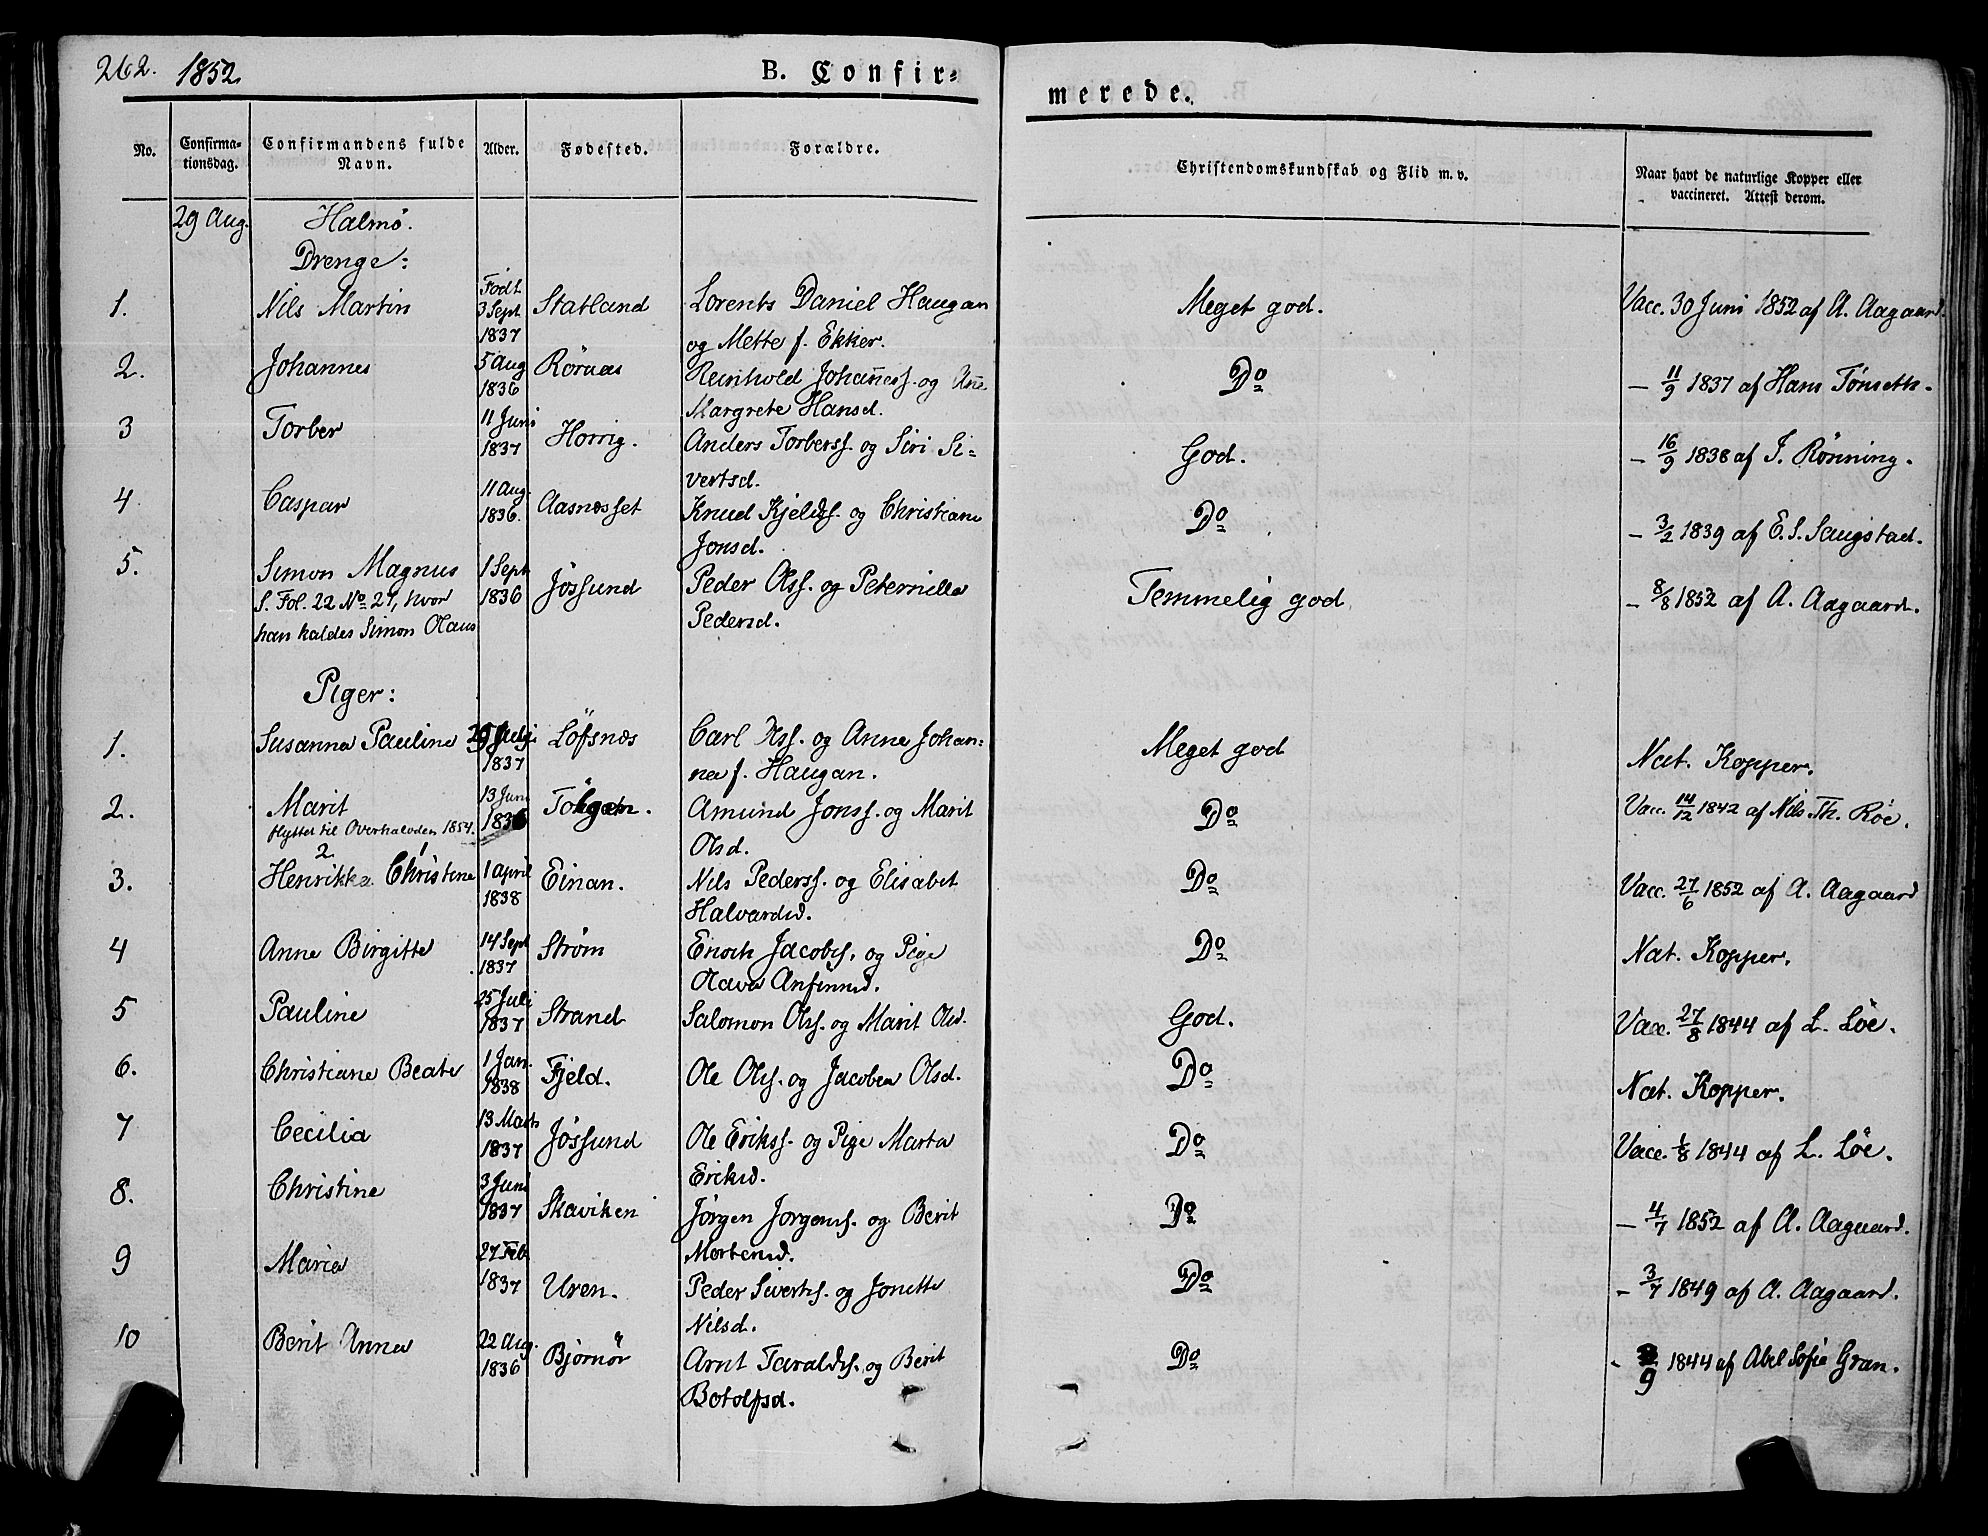 262. 1852.
B. Confir-
merede.
No. Confirma-tionsdag. Confirmandens fulde Navn. Alder. Fødested. Forældre. Christendomskundskab og Flid m. v. Naar havt de naturlige Kopper eller vaccineret. Attest derom.
29 Aug. Halmö.
Drenge:
1. Nils Martin Födt 3 Sept 1837 Statland Lorents Daniel Haugan og Mette f. Ekker. Meget god. Vacc. 30 Juni 1852 af A. Aagaard.
2. Johannes 5 Aug 1836 Rörnæs Reinhold Johan̄ess. og An̄e Margrete Hansd. Do - 11/9 1837 af Hans Tönseth.
3 Torber 11 Juni 1837 Horrig. Anders Torberss. og Siri Si=vertsd. God. - 16/9 1838 af J. Rönning.
4 Caspar 11 Aug. 1836. Aasnæsset Knud Kjeldss. og Christiane Jonsd. Do - 3/2 1839 af E. S. Saugstad.
5. Simon Magnus 1 Sept 1836 Jössund Peder Olss. og Peternilla Pedersd. Temmelig god - 8/8 1852 af A. Aagaard.
S. Fol. 22 No 27, hvor
han kaldes Simon Olaus
Piger:
1. Susanna Pauline Juli 1837 Löfsnæs Carl Olss. og Anne Johan=na f. Haugan. Meget god Nat. Kopper.
2. Marit 13 Juni 1836 Amund Jonss. og Marit Olsd. Do Vacc. 14/12 1842 af Nils Th. Röe.
flyttet til Overhalvden 1854.
2 1
3. Henrikka Christine 1 April 1838 Einan. Nils Pederss. og Elisabet Halvardsd. Do Vacc. 27/6 1852 af A. Aagaard
4 Anne Birgitte 14 Sept 1837 Ström Enoch Jacobss. og Pige Olava Anfinnsd. Do Nat. Kopper.
5 Pauline 25 Juli 1837 Strand Salomon Olss. og Marit Olsd. God. Vacc. 27/8 1844 af L. Löe.
6. Christiane Beate 1 Jan. 1838 Fjeld. Ole Olss. og Jacobea Olsd. Do Nat. Kopper.
7 Cecilia 13 Marts 1837 Jössund Ole Erikss. og Pige Marta Eriksd. Do Vacc. 1/8 1844 af L. Löe.
8. Christine 3 Juni 1837 Skaviken Jörgen Jörgenss. og Berit Mortensd. Do - 4/7 1852 af A. Aagaard.
9 Maria 27 Feb. 1837 Uren. Peder Sivertss. og Jonette Nilsd. Do - 3/7 1849 af A. Aagaard.
10 Berit Anna 22 Aug. 1836 Björnör Arnt Taraldss. og Berit Botolfsd. Do - /9 1844 af Abel Sofie Gran.